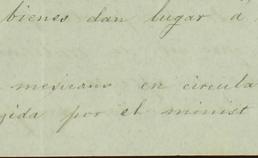 bienes dan lugar á
mexicano en circula
gida por el minist